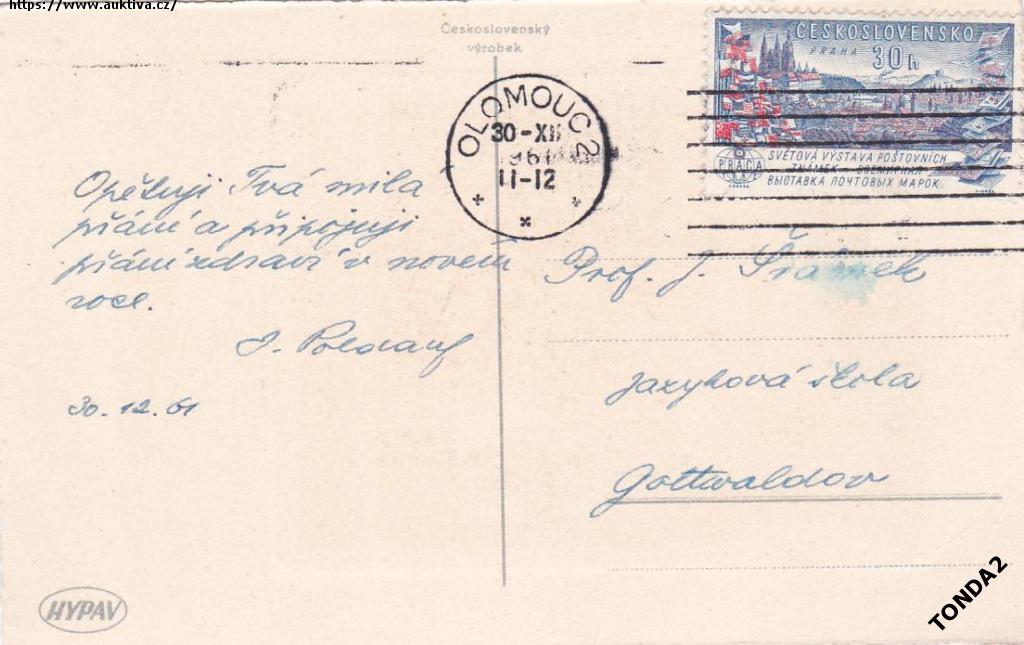 https://www.auktiva.cz/
Československý
výrobek
OLOMOUC 2
30-XII
1961
11-12
ČESKOSLOVENSKO
PRAHA
30 h
PRAGA
SVĚTOVÁ VÝSTAVA POŠTOVNÍCH
ZNÁMEK - ВСЕМИРНАЯ
ВЫСТАВКА ПОЧТОВЫХ МАРОК
Opětuji Tvá milá
přání a připojuji
přání zdraví v novém
roce.
J. Poldauf
30. 12. 61
Prof. J. Šrámek
Jazyková škola
Gottwaldov
HYPAV
TONDA2